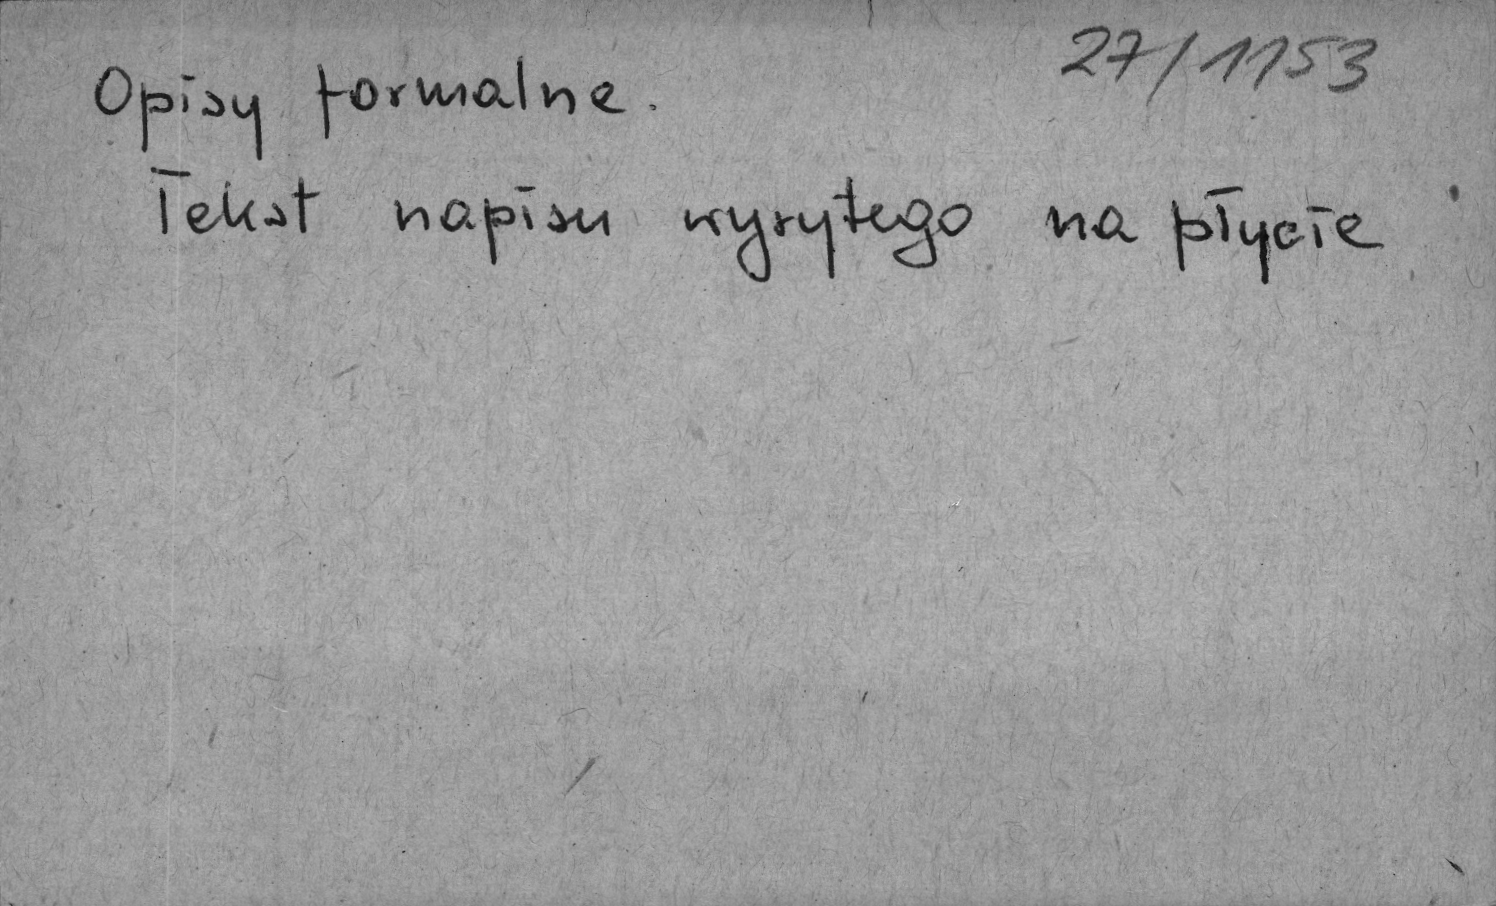 27/1153
Opisy formalne.
Tekst napisu wyrytego na płycie